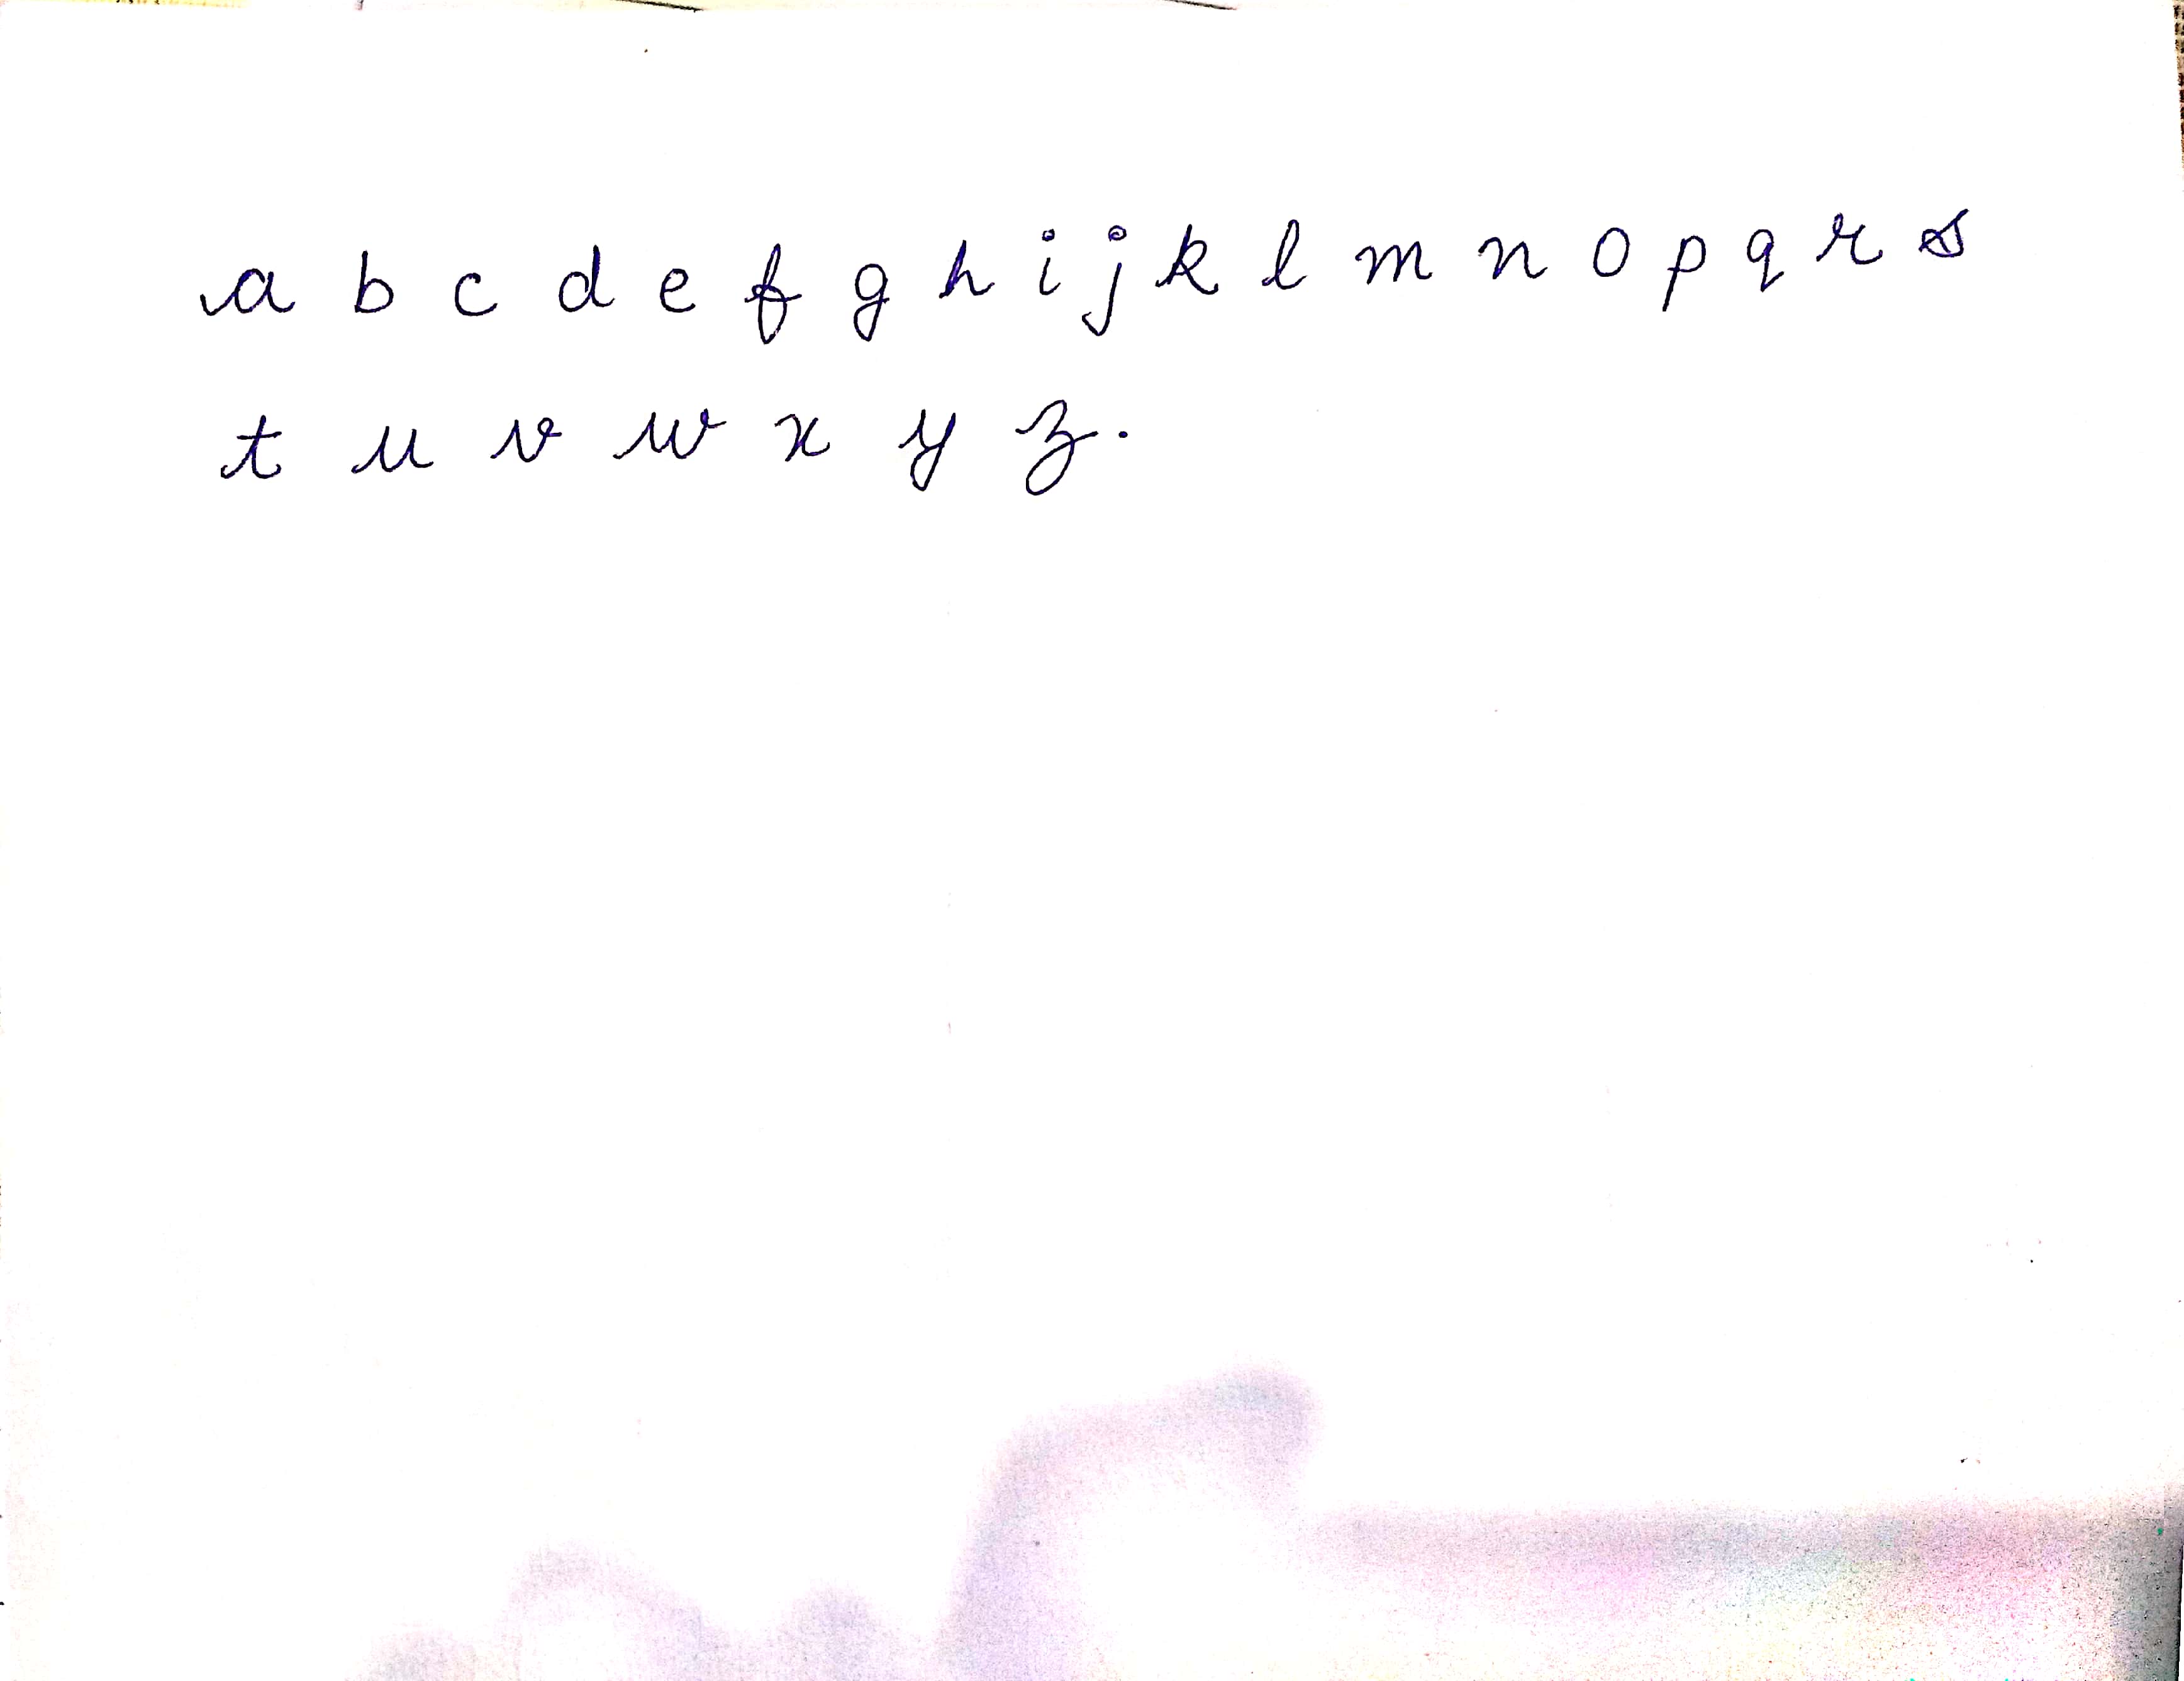 a b c d e f g h i j k l m n o p q r s
t u v w x y z.